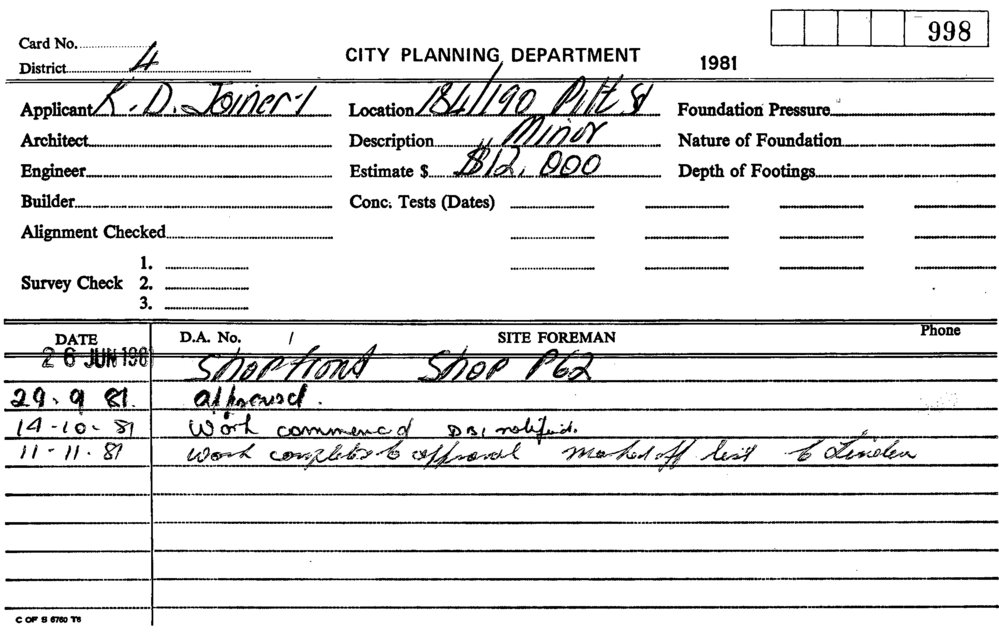 998
Card No.
District 4
CITY PLANNING DEPARTMENT
1981
Applicant K. D. Joinery
Location 184/190 Pitt St
Foundation Pressure
Architect
Description Minor
Nature of Foundation
Engineer
Estimate $ $12,000
Depth of Footings
Builder
Conc. Tests (Dates)
Alignment Checked
Survey Check
1.
2.
3.
DATE
D.A. No.
SITE FOREMAN
Phone
26 JUN 1981 Shopfront Shop P62
29.9 81. approved.
14-10-81 Work commenced DBI notified.
11-11.81 Work completed to approval marked off list to Linden
C OF S 6760 T6